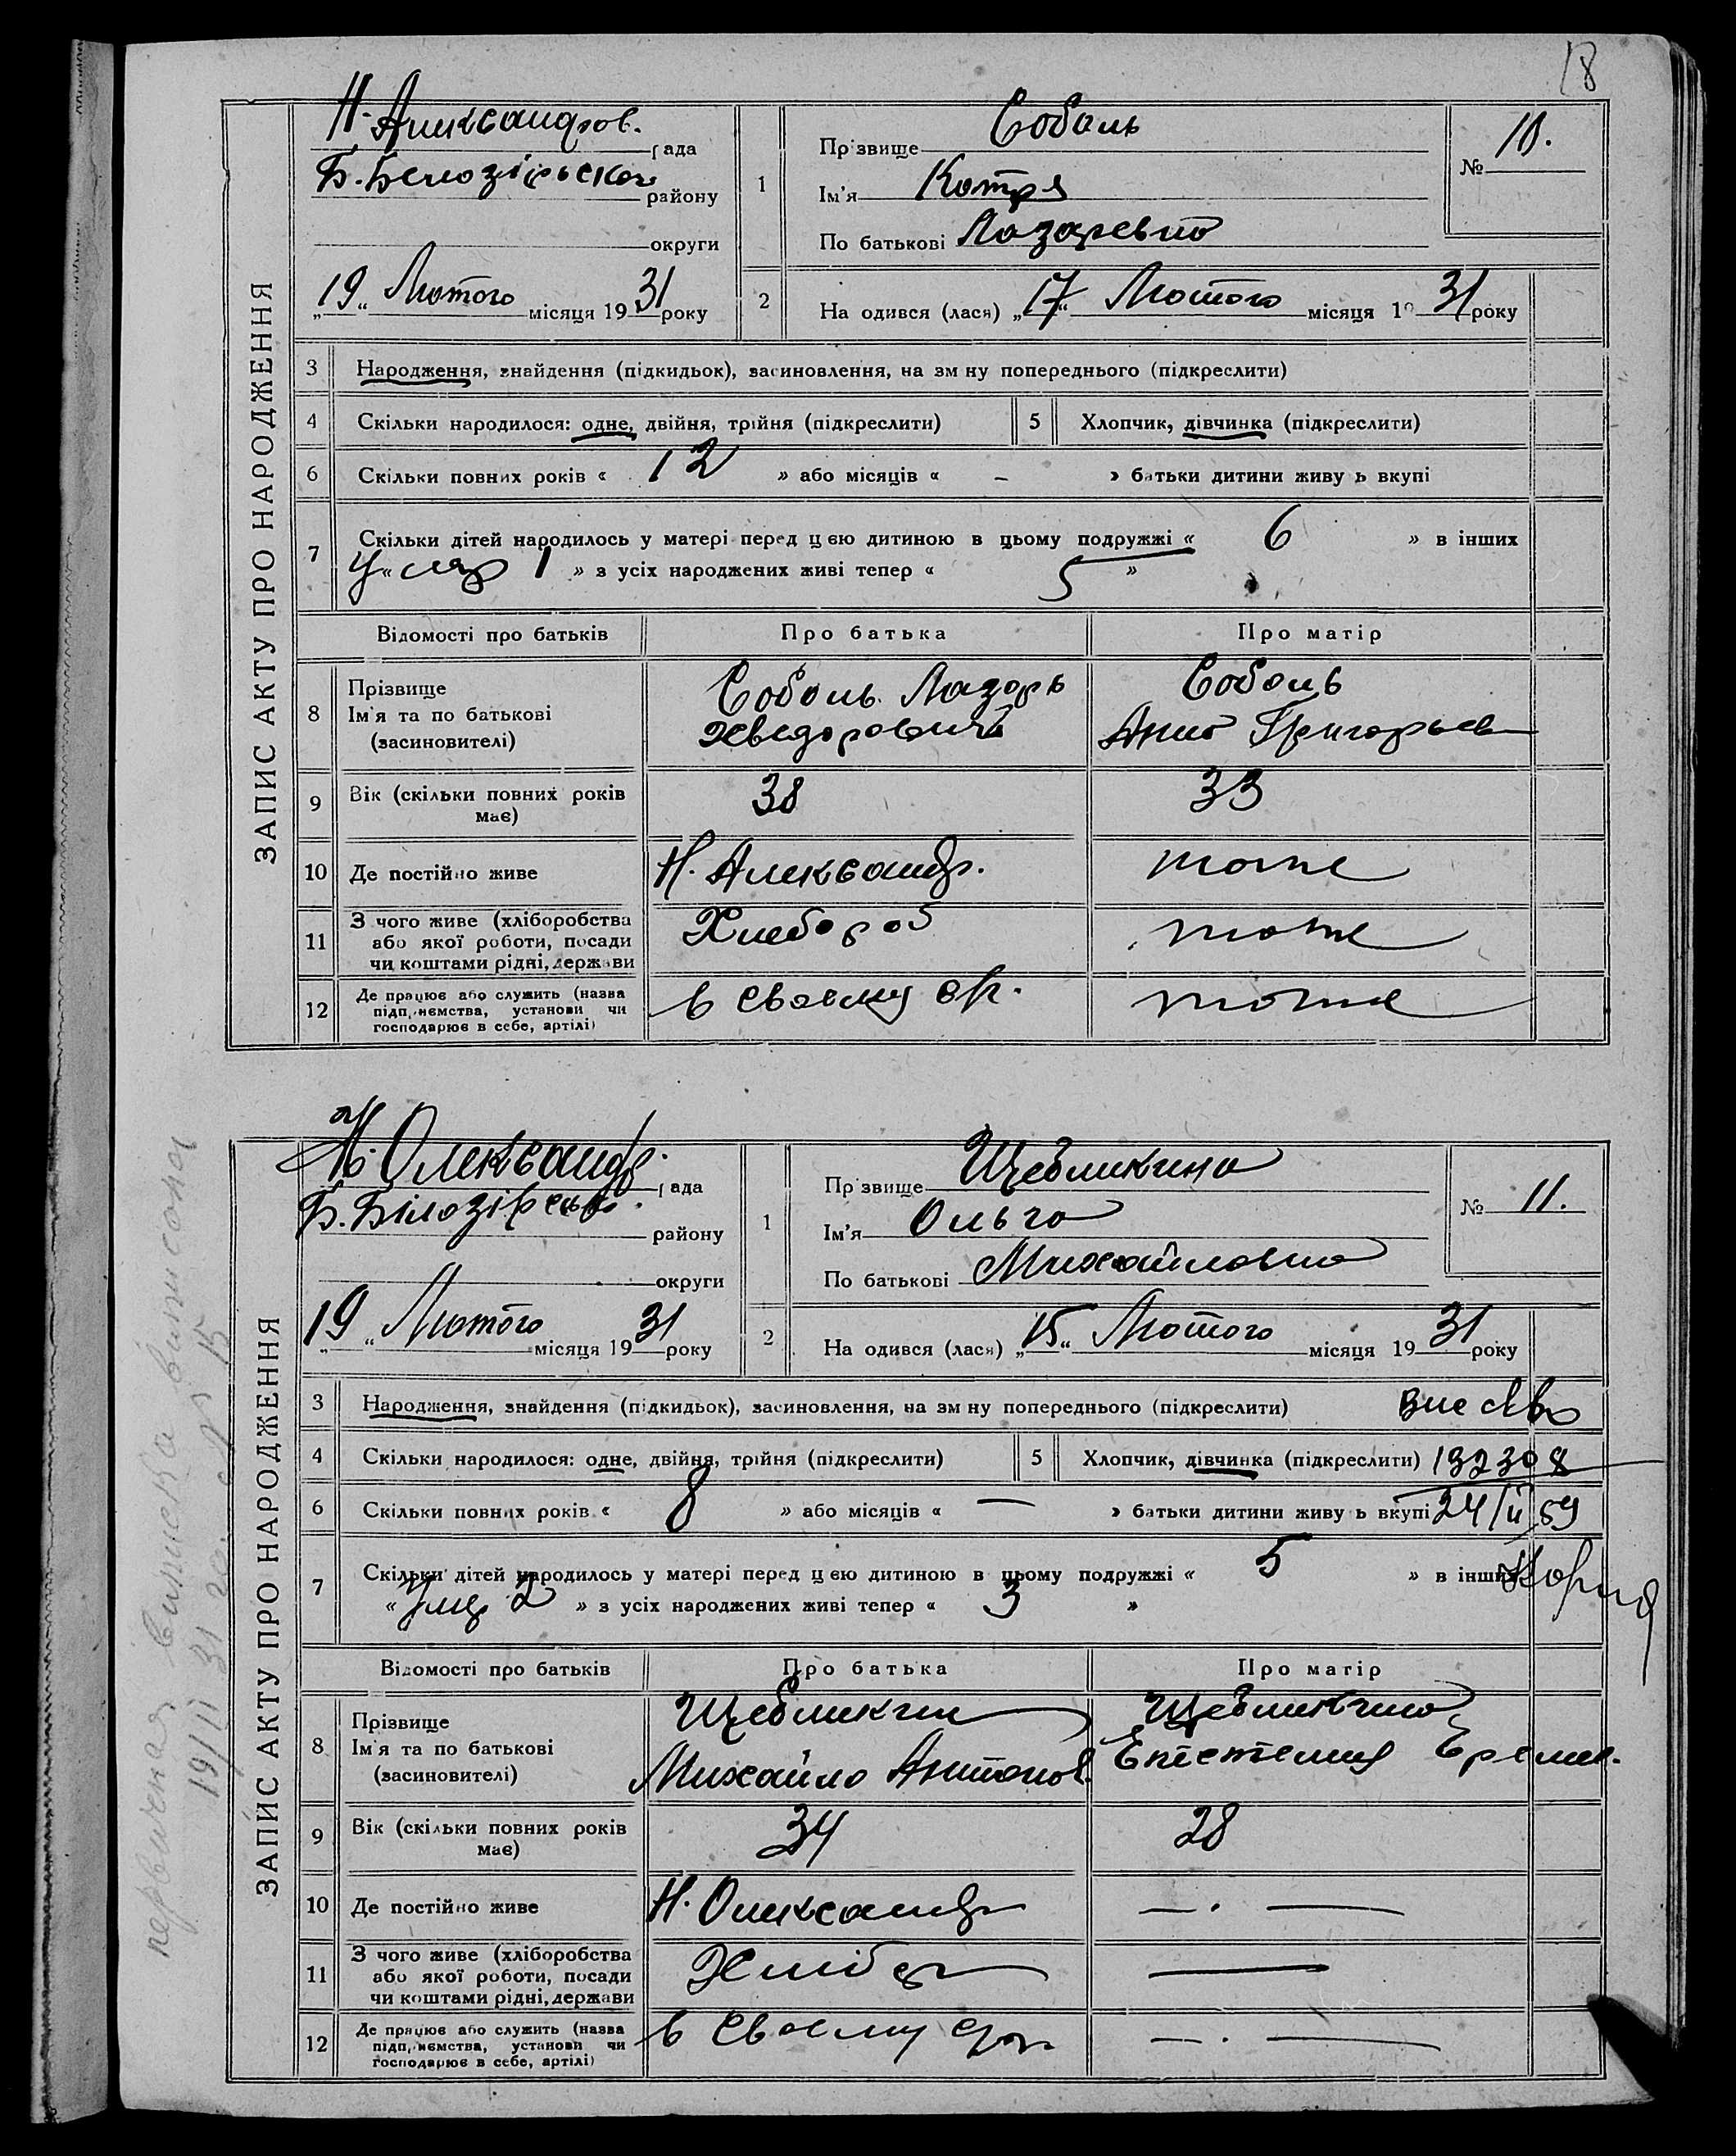 18
ЗАПИС АКТУ ПРО НАРОДЖЕННЯ
Н. Александров. рада
Б. Белозірьског району
округи
„19“ Лютого місяця 1931 року
1
Прізвище Соболь
Ім'я Котря
По батькові Лазаревна
№ 10.
2
На одився (лася) „17“ Лютого місяця 1931 року
3 Народження, знайдення (підкидьок), засиновлення, на зм ну попереднього (підкреслити)
4 Скільки народилося: одне, двійня, трійня (підкреслити)
5 Хлопчик, дівчинка (підкреслити)
6 Скільки повних років « 12 » або місяців « – » батьки дитини живу ь вкупі
7 Скільки дітей народилось у матері перед цею дитиною в цьому подружжі « 6 » в інших
« умер 1 » з усіх народжених живі тепер « 5 »
Відомості про батьків Про батька Про матір
8 Прізвище
Ім'я та по батькові
(засиновителі)
Соболь Лазорь
Хведорович
Соболь
Анна Григорьев
9 Вік (скільки повних років
має)
38
33
10 Де постійно живе Н. Александр. тоже
11 З чого живе (хліборобства
або якої роботи, посади
чи коштами рідні, держави
Хлебороб
тоже
12 Де працює або служить (назва
підп, иємства, установи чи
господарює в себе, артілі)
в своему
тоже
ЗАПИС АКТУ ПРО НАРОДЖЕННЯ
Н. Олександр. рада
Б. Білозірськ. району
округи
„19“ Лютого місяця 1931 року
1
Прізвище Щебликина
Ім'я Ольга
По батькові Михайловна
№ 11.
2
На одився (лася) „15“ Лютого місяця 1931 року
3 Народження, знайдення (підкидьок), засиновлення, на зм ну попереднього (підкреслити)
4 Скільки народилося: одне, двійня, трійня (підкреслити)
5 Хлопчик, дівчинка (підкреслити) 132308
6 Скільки повних років « 8 » або місяців « — » батьки дитини живу ь вкупі 24/II 59
7 Скільки дітей народилось у матері перед цею дитиною в цьому подружжі « 5 » в інших
« Умер 2 » з усіх народжених живі тепер « 3 »
Відомості про батьків Про батька Про матір
8 Прізвище
Ім'я та по батькові
(засиновителі)
Щебликин
Михайло Антонов.
Щебликина
Епестемия Еремее.
9 Вік (скільки повних років
має)
34
28
10 Де постійно живе Н. Олександр —·—
11 З чого живе (хліборобства
або якої роботи, посади
чи коштами рідні, держави
Хлібор
—
12 Де працює або служить (назва
підп, иємства, установи чи
господарює в себе, артілі)
в своему
—·—
первичная выписка выписана
19/II 31 № 15